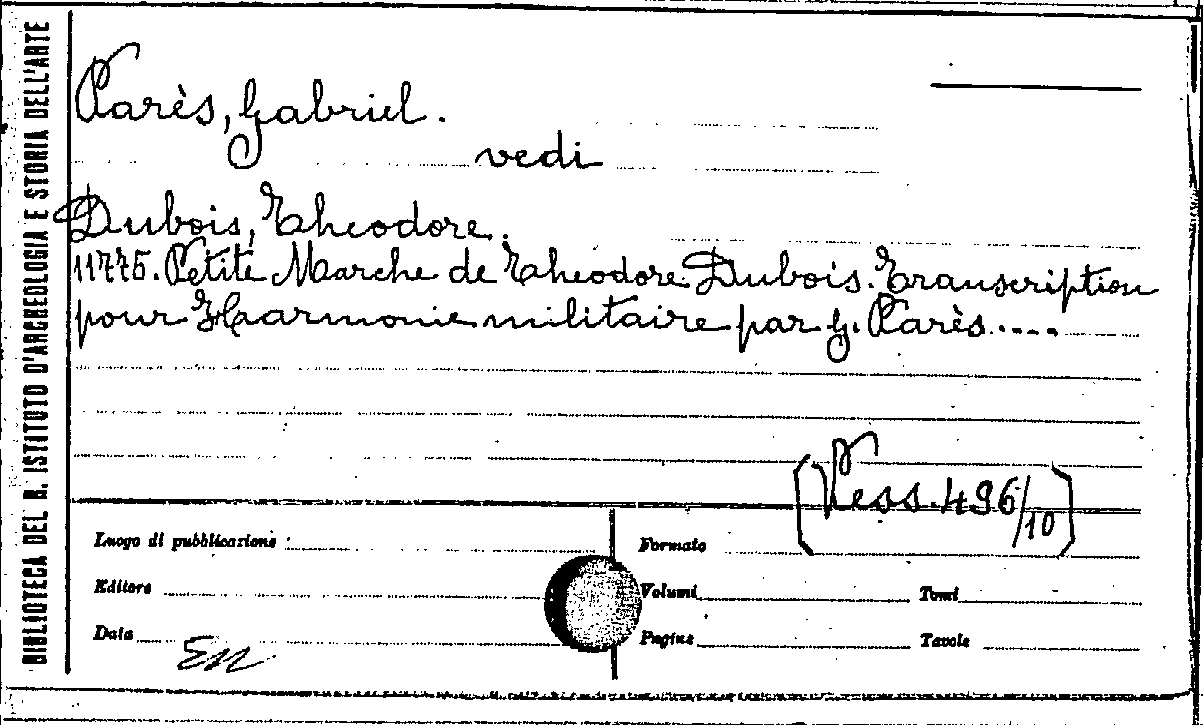 BIBLIOTECA DEL R. ISTITUTO D'ARCHEOLOGIA E STORIA DELL'ARTE
Parès, Gabriel.
vedi
Dubois, Theodore.
11775. Petite Marche de Theodore Dubois. Transcription
pour Haarmonie militaire par G. Parès.....
[Vess. 496/10]
Luogo di pubblicazione
Formato
Editore
Volumi
Tomi
Data
Pagine
Tavole